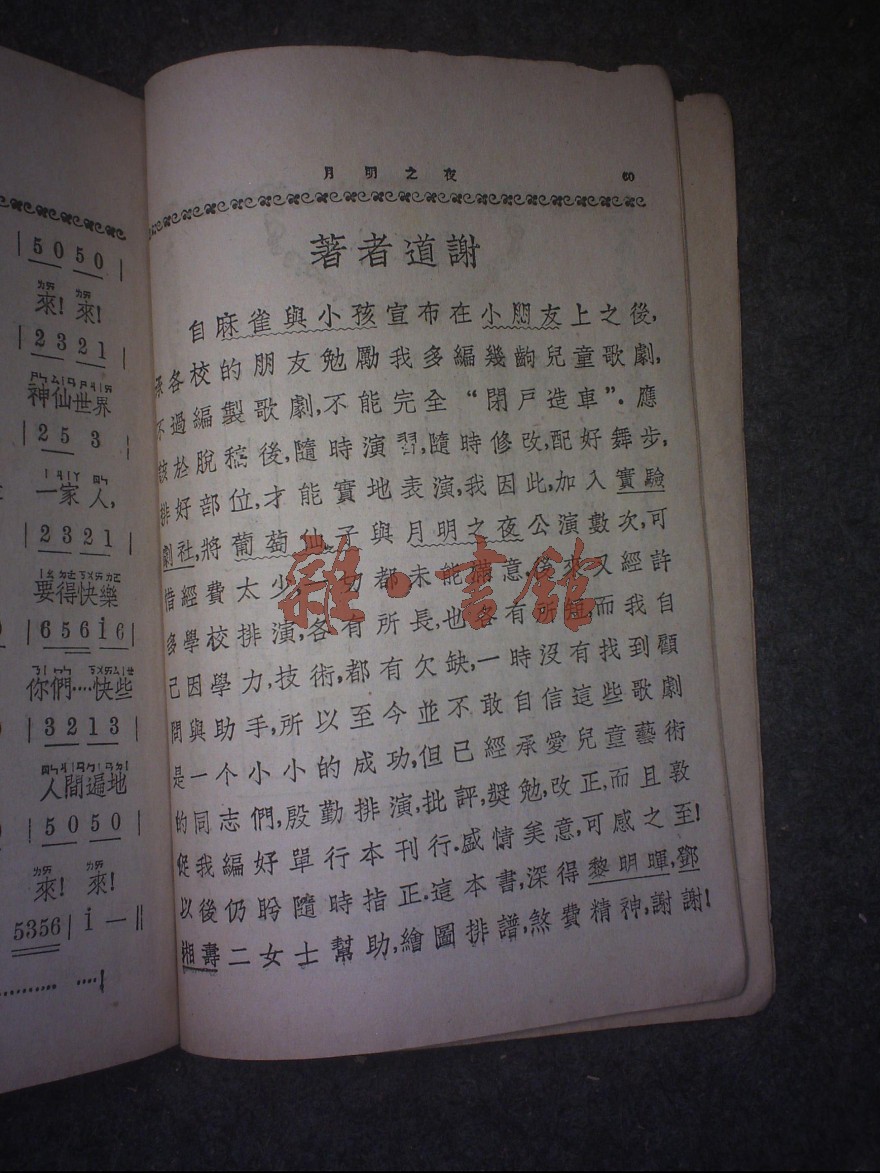 | 5 0 5 0 |
ㄌㄞ ㄌㄞ
來! 來!
| 2 3 2 1 |
神仙世界
| 2 5 3 |
一家人,
| 2 3 2 1 |
要得快樂
| 6 5 6 i 6 |
你們····快些
| 3 2 1 3 |
人間遍地
| 5 0 5 0 |
ㄌㄞ ㄌㄞ
來! 來!
5356 | i — ||
月明之夜 60
著者道謝
自麻雀與小孩宣布在小朋友上之後,
承各校的朋友勉勵我多編幾齣兒童歌劇,
不過編製歌劇,不能完全“閉戶造車”.應
該於脫稿後,隨時演習,隨時修改,配好舞步,
排好部位,才能實地表演,我因此,加入實驗
劇社,將葡萄仙子與月明之夜公演數次,可
惜經費太少,一切都未能滿意,後來又經許
多學校排演,各有所長,也各有所短,而我自
己因學力,技術,都有欠缺,一時沒有找到顧
問與助手,所以至今並不敢自信這些歌劇
是一个小小的成功,但已經承愛兒童藝術
的同志們,殷勤排演,批評,獎勉,改正,而且敦
促我編好單行本刊行.盛情美意,可感之至!
以後仍盼隨時指正.這本書,深得黎明暉,鄧
相壽二女士幫助,繪圖排譜,煞費精神,謝謝!
雜·書館